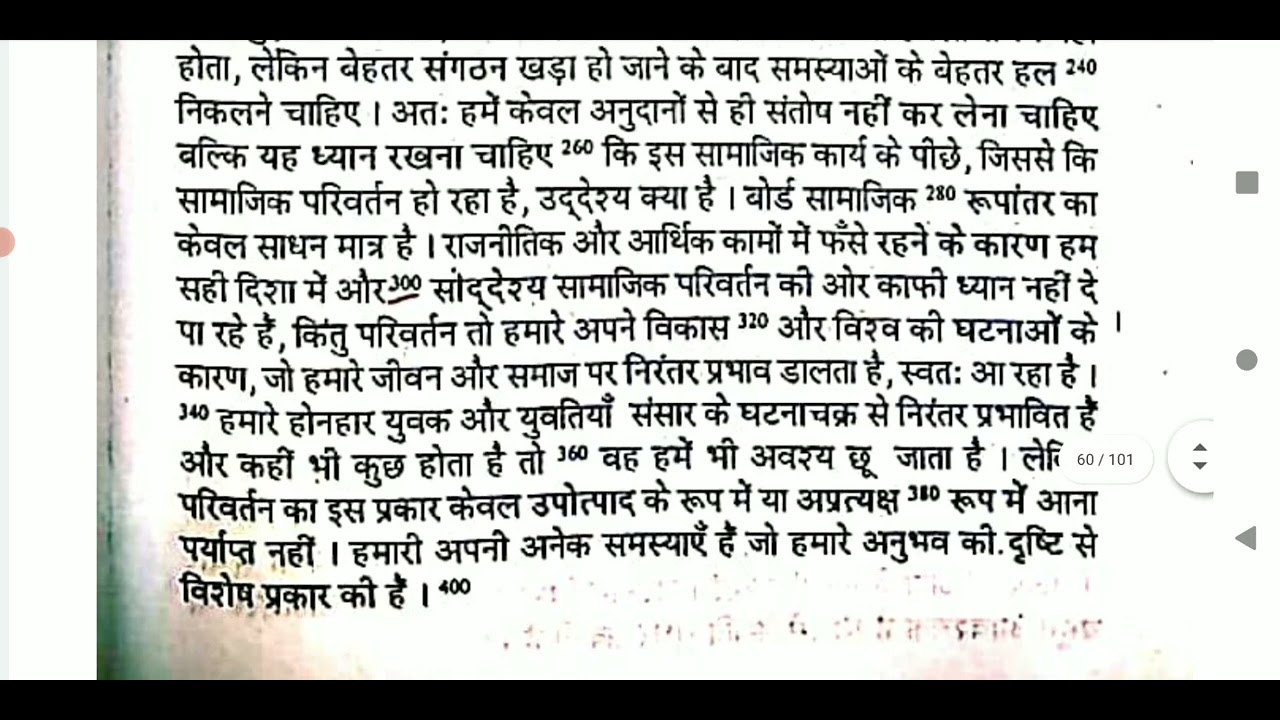 होता, लेकिन बेहतर संगठन खड़ा हो जाने के बाद समस्याओं के बेहतर हल 240
निकलने चाहिए । अतः हमें केवल अनुदानों से ही संतोष नहीं कर लेना चाहिए
बल्कि यह ध्यान रखना चाहिए 260 कि इस सामाजिक कार्य के पीछे, जिससे कि
सामाजिक परिवर्तन हो रहा है, उद्देश्य क्या है । बोर्ड सामाजिक 280 रूपांतर का
केवल साधन मात्र है । राजनीतिक और आर्थिक कामों में फँसे रहने के कारण हम
सही दिशा में और 300 सांद्देश्य सामाजिक परिवर्तन की ओर काफी ध्यान नहीं दे
पा रहे हैं, किंतु परिवर्तन तो हमारे अपने विकास 320 और विश्व की घटनाओं के
कारण, जो हमारे जीवन और समाज पर निरंतर प्रभाव डालता है, स्वतः आ रहा है ।
340 हमारे होनहार युवक और युवतियाँ संसार के घटनाचक्र से निरंतर प्रभावित हैं
और कहीं भी कुछ होता है तो 360 वह हमें भी अवश्य छू जाता है ।
60 / 101
परिवर्तन का इस प्रकार केवल उपोत्पाद के रूप में या अप्रत्यक्ष 380 रूप में आना
पर्याप्त नहीं । हमारी अपनी अनेक समस्याएँ हैं जो हमारे अनुभव की दृष्टि से
विशेष प्रकार की हैं । 400